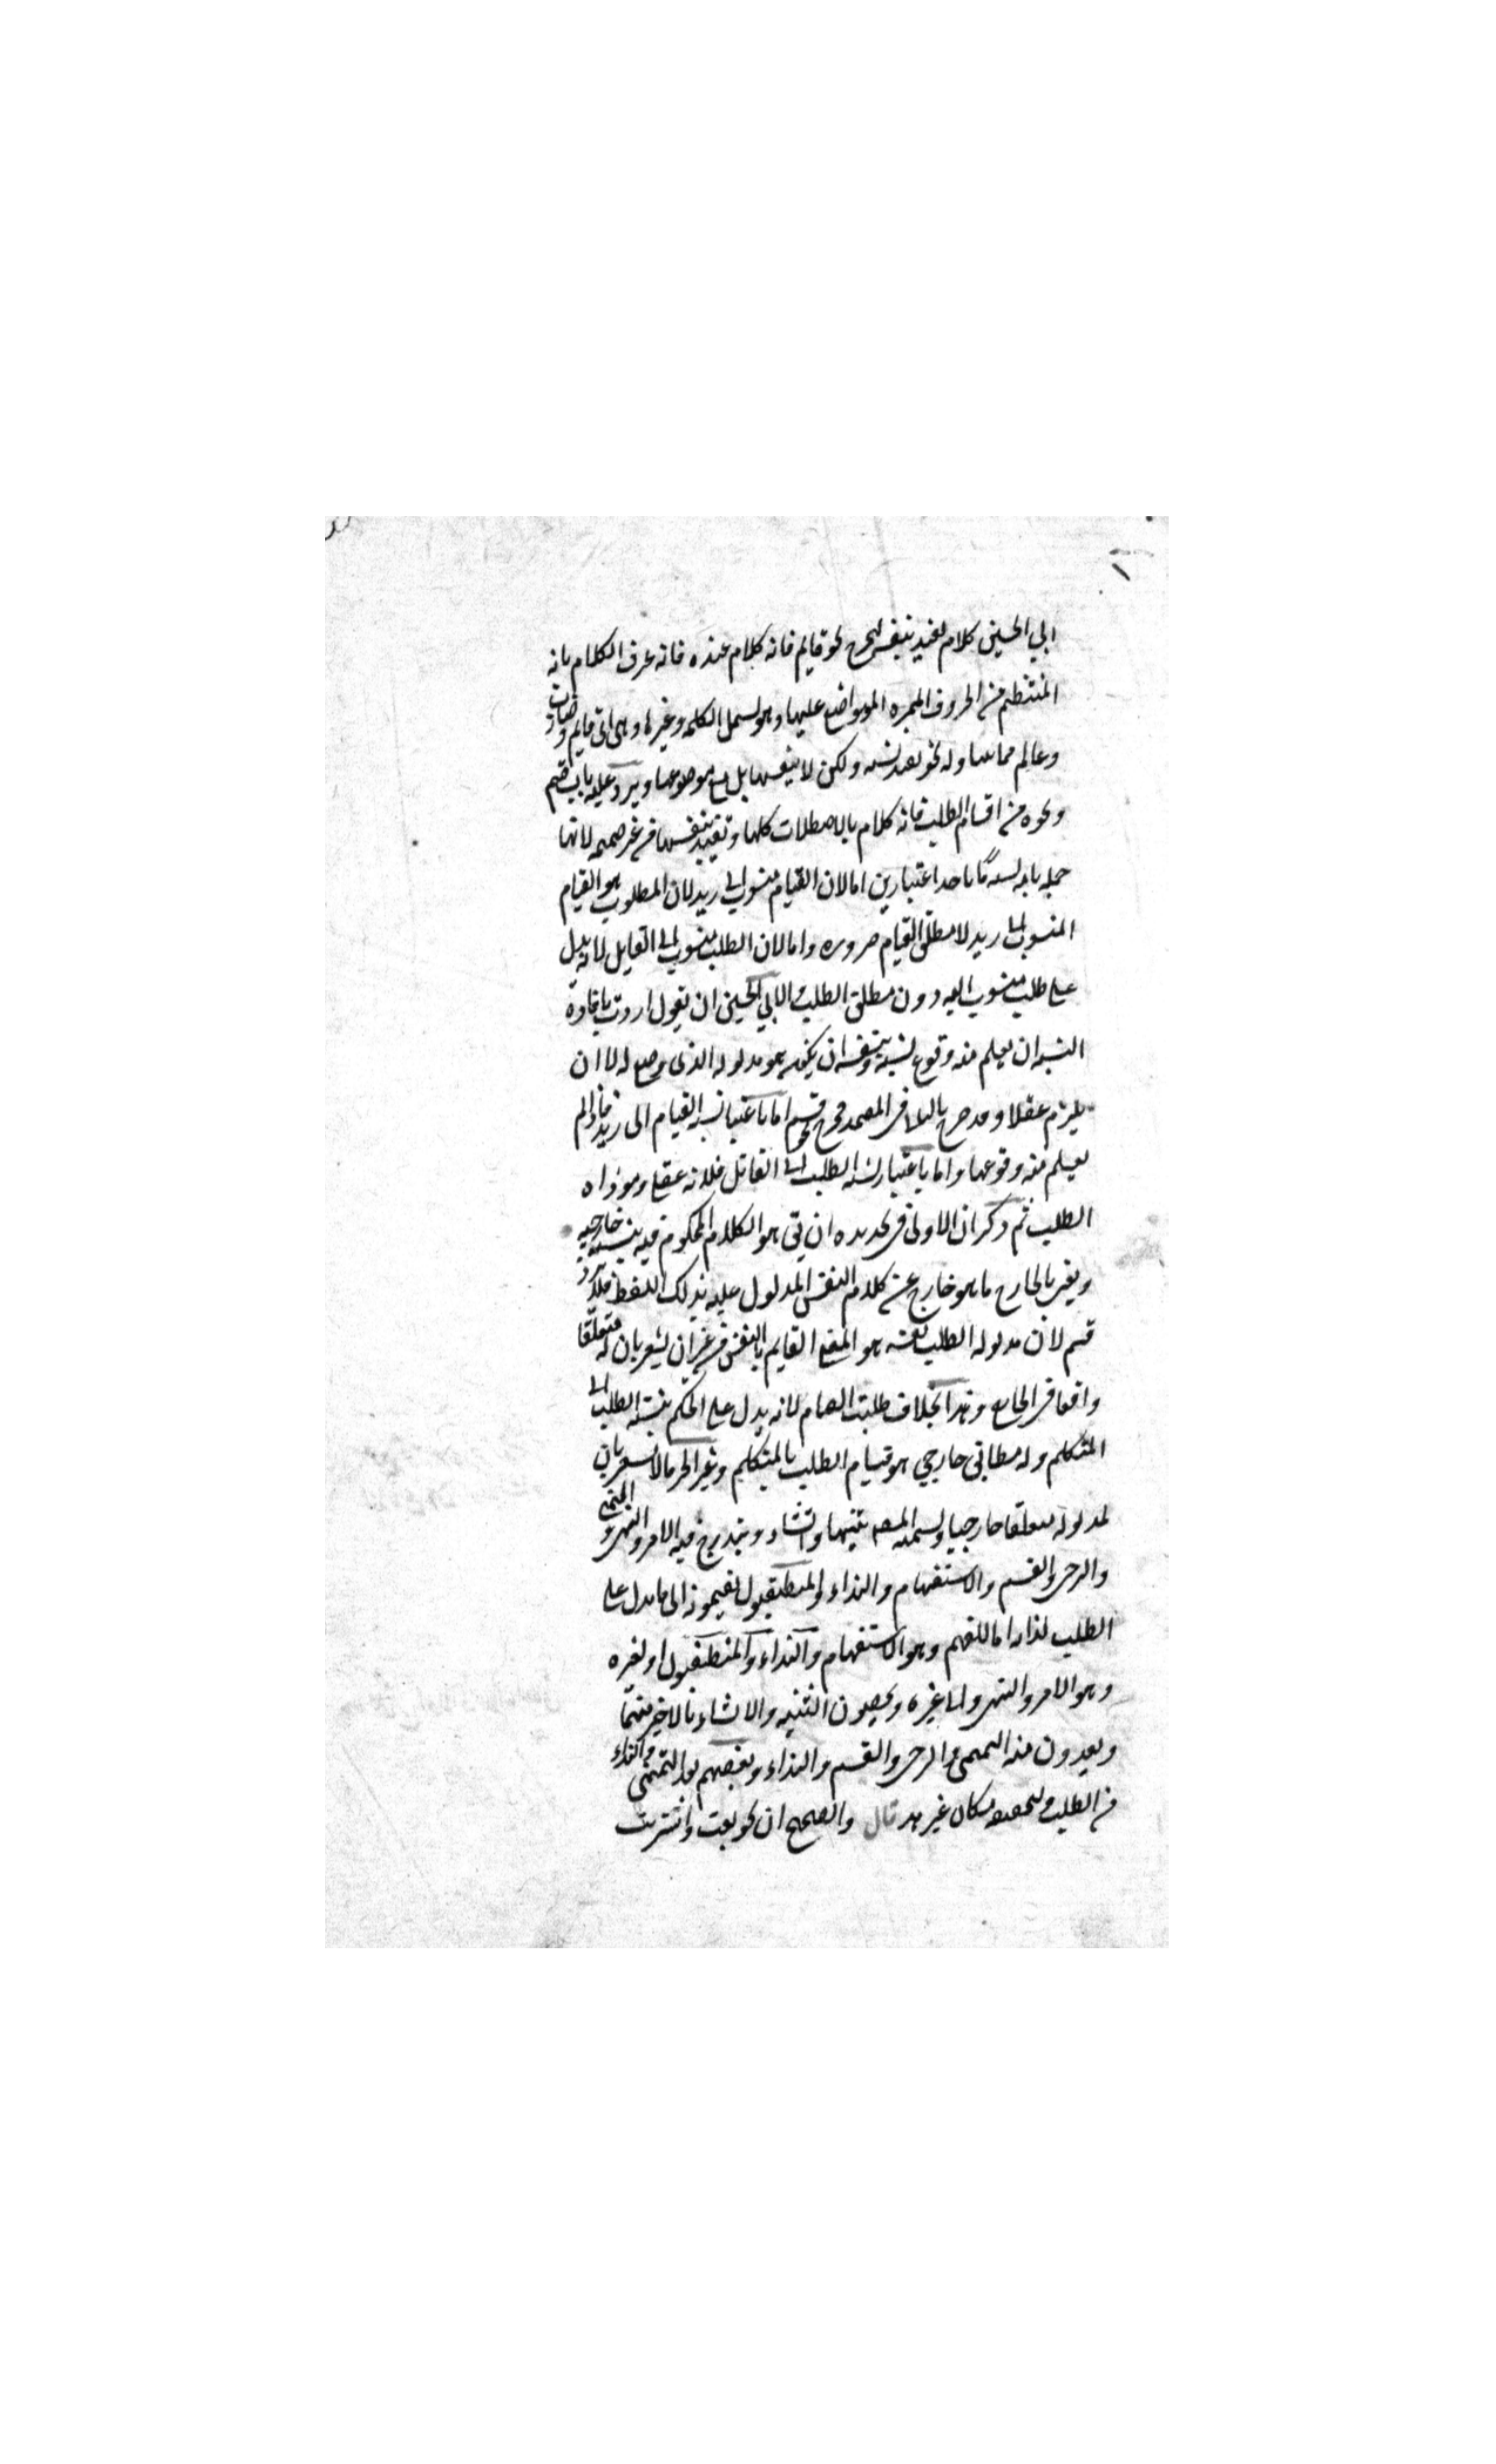 ابي الحسين كلام يفيد بنفسه ليخرج نحو قايم فانه كلام عنده فانه عرف الكلام بانه
المنتظم من الحروف المميزه المتواضع عليها وهو يشمل الكلمه وغيرها وهى اى قايم وضارب
وعالم مما ولكن لا بنفسها بل مع موضوعها ويرد عليه باب قم
ونحوه من اقسام الطلب فانه كلام بالاصطلاحات كلها وتفيد بنفسها من غير ضميمه لانها
جمله تامه باحد اعتبارين اما لان القيام منسوب الى زيد لان المطلوب هو القيام
المنسوب الى زيد لا مطلق القيام ضروره واما لان الطلب منسوب الى القايل لانه يدل
على طلب منسوب اليه دون مطلق الطلب ولابي الحسين ان يقول اردت بافادة
النسبه ان يعلم منه وقوع نسبة وبنفسه ان يكون هو مدلوله الذى وضع له لا ان
يلزم عقلا وقد صرح فى المعتمد فخرج نحو قم اما باعتبار نسبه القيام الى زيد فاذ لم
يعلم منه وقوعها واما باعتبار نسبه الطلب الى القائل فلانه عقلى ومؤداه
الطلب ثم ذكر ان الاولى فى تحديده ان يق هو الكلام المحكوم فيه بنسبة خارجيه
ويعنى بالخارج ما هو خارج عن كلام النفس المدلول عليه بذلك اللفظ فلا يرد
قم لان مدلوله الطلب نفسه هو المعنى القايم بالنفس من غير ان يشعر بان له متعلقا
واقعا فى الخارج وهذا بخلاف طلبت القيام لانه يدل على الحكم بنسبة الطلب الى
المتكلم وله مطابق خارجي هو قيام الطلب بالمتكلم وغير الخبر ما لا يشعر بان
لمدلوله متعلقا خارجيا ويسميه المصنف تنبيها وانشاء ويندرج فيه الامر والنهى والتمنى
والترجى والقسم والاستفهام والنداء والمنطقيون يقسمونه الى ما يدل على
الطلب لذاته اما للفهم وهو الاستفهام والنداء والمنطقيون او لغيره
وهو الامر والنهى والى غيره ويخصون التنبيه والانشاء بالاخير منهما
ويعدون منه التمنى والترجى والقسم والنداء وبعضهم يعد التمنى والنداء
من الطلب غير قال والصحيح ان نحو بعت واشتريت